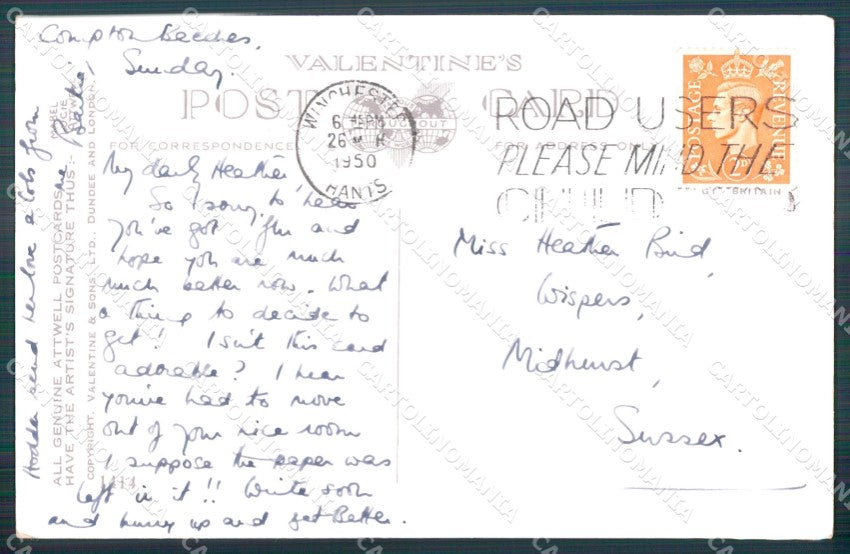 Compton Beeches,
Sunday.
VALENTINE'S
POST CARD
FOR CORRESPONDENCE
FOR ADDRESS ONLY
WINCHESTER
6 PM
26
1950
HANTS
ROAD USERS
PLEASE MIND THE
CHILD
POSTAGE
REVENUE
My darling Heather,
So I sorry to hear
you've got flu and
hope you are much
much better now. What
a thing to decide to
get! Isn't this card
adorable? I hear
you've had to move
out of your nice room
I suppose the paper was
left in it!! Write soon
and hurry up and get Better.
Miss Heather Bird,
Wispers,
Midhurst,
Sussex.
send her love & lots from
me
ALL GENUINE ATTWELL POSTCARDS
HAVE THE ARTIST'S SIGNATURE THUS:-
MABEL
LUCIE
ATTWELL
COPYRIGHT, VALENTINE & SONS, LTD., DUNDEE AND LONDON.
1414
CARTOLINOMANIA